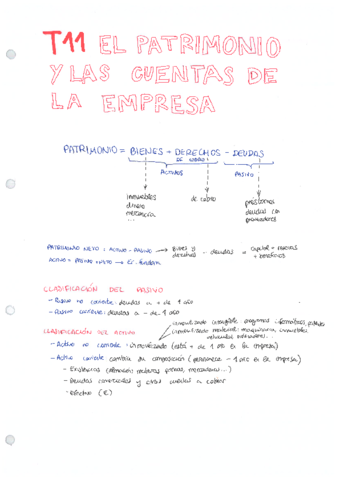 T11 EL PATRIMONIO
Y LAS CUENTAS DE
LA EMPRESA
PATRIMONIO = BIENES + DERECHOS - DEUDAS
DE COBRO
ACTIVOS PASIVO
inmuebles de cobro préstamos
dinero deudas con
mercancía proveedores
...
PATRIMONIO NETO = ACTIVO - PASIVO → Bienes y derechos - deudas = capital + reservas + beneficios
ACTIVO = PASIVO + NETO → Ec. fundam.
CLASIFICACIÓN DEL PASIVO
- Pasivo no corriente: deudas a + de 1 año
- Pasivo corriente: deudas a - de 1 año
inmovilizado intangible: programas informáticos, patentes
CLASIFICACIÓN DEL ACTIVO
inmovilizado material: maquinaria, inmuebles,
- Activo no corriente: inmovilizado (está + de 1 año en la empresa)
- Activo corriente cambia su composición (permanece - 1 año en la empresa)
- Existencias (almacén materias primas, mercaderías...)
- Deudas comerciales y otras cuentas a cobrar
- Efectivo (€)